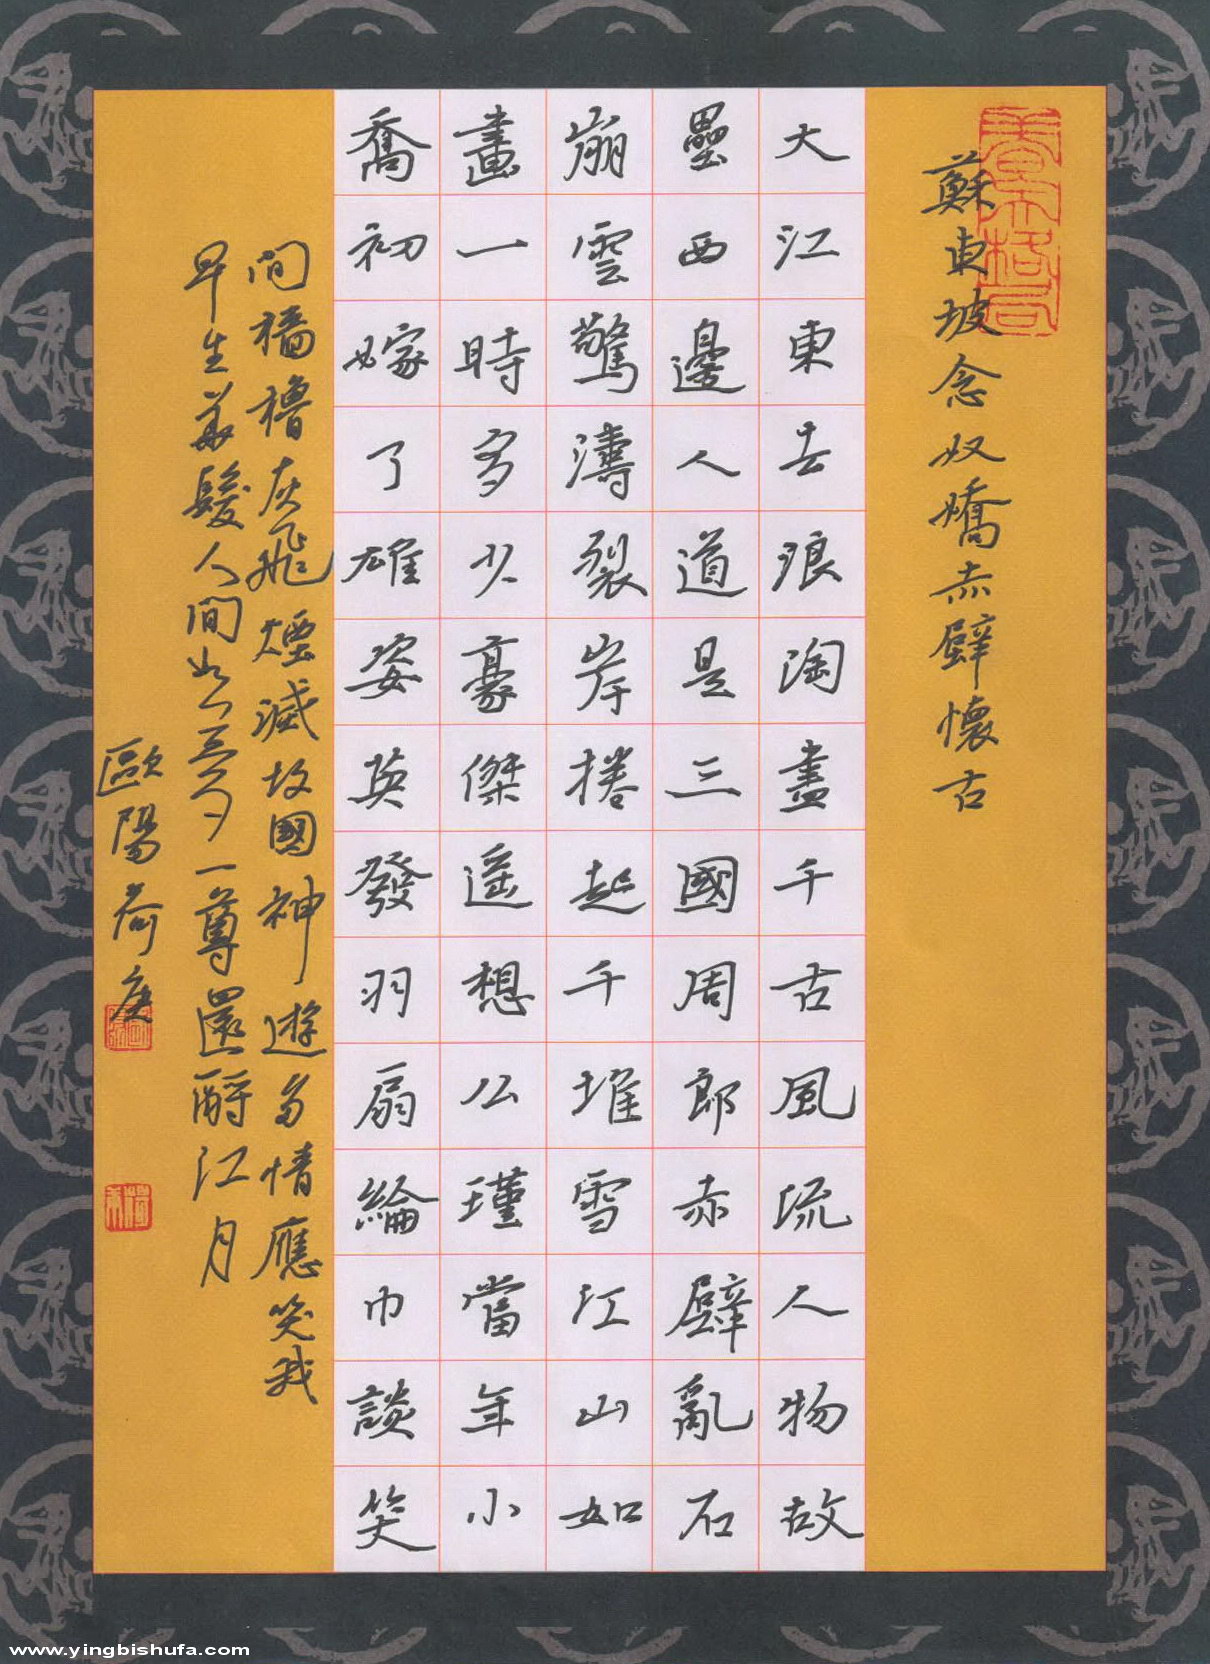 蘇東坡念奴嬌赤壁懷古
大江東去浪淘盡千古風流人物故
壘西邊人道是三國周郎赤壁亂石
崩雲驚濤裂岸捲起千堆雪江山如
畫一時多少豪傑遥想公瑾當年小
喬初嫁了雄姿英發羽扇綸巾談笑
間檣櫓灰飛煙滅故國神遊多情應笑我
早生華髮人間如夢一尊還酹江月
歐陽荷庚
www.yingbishufa.com